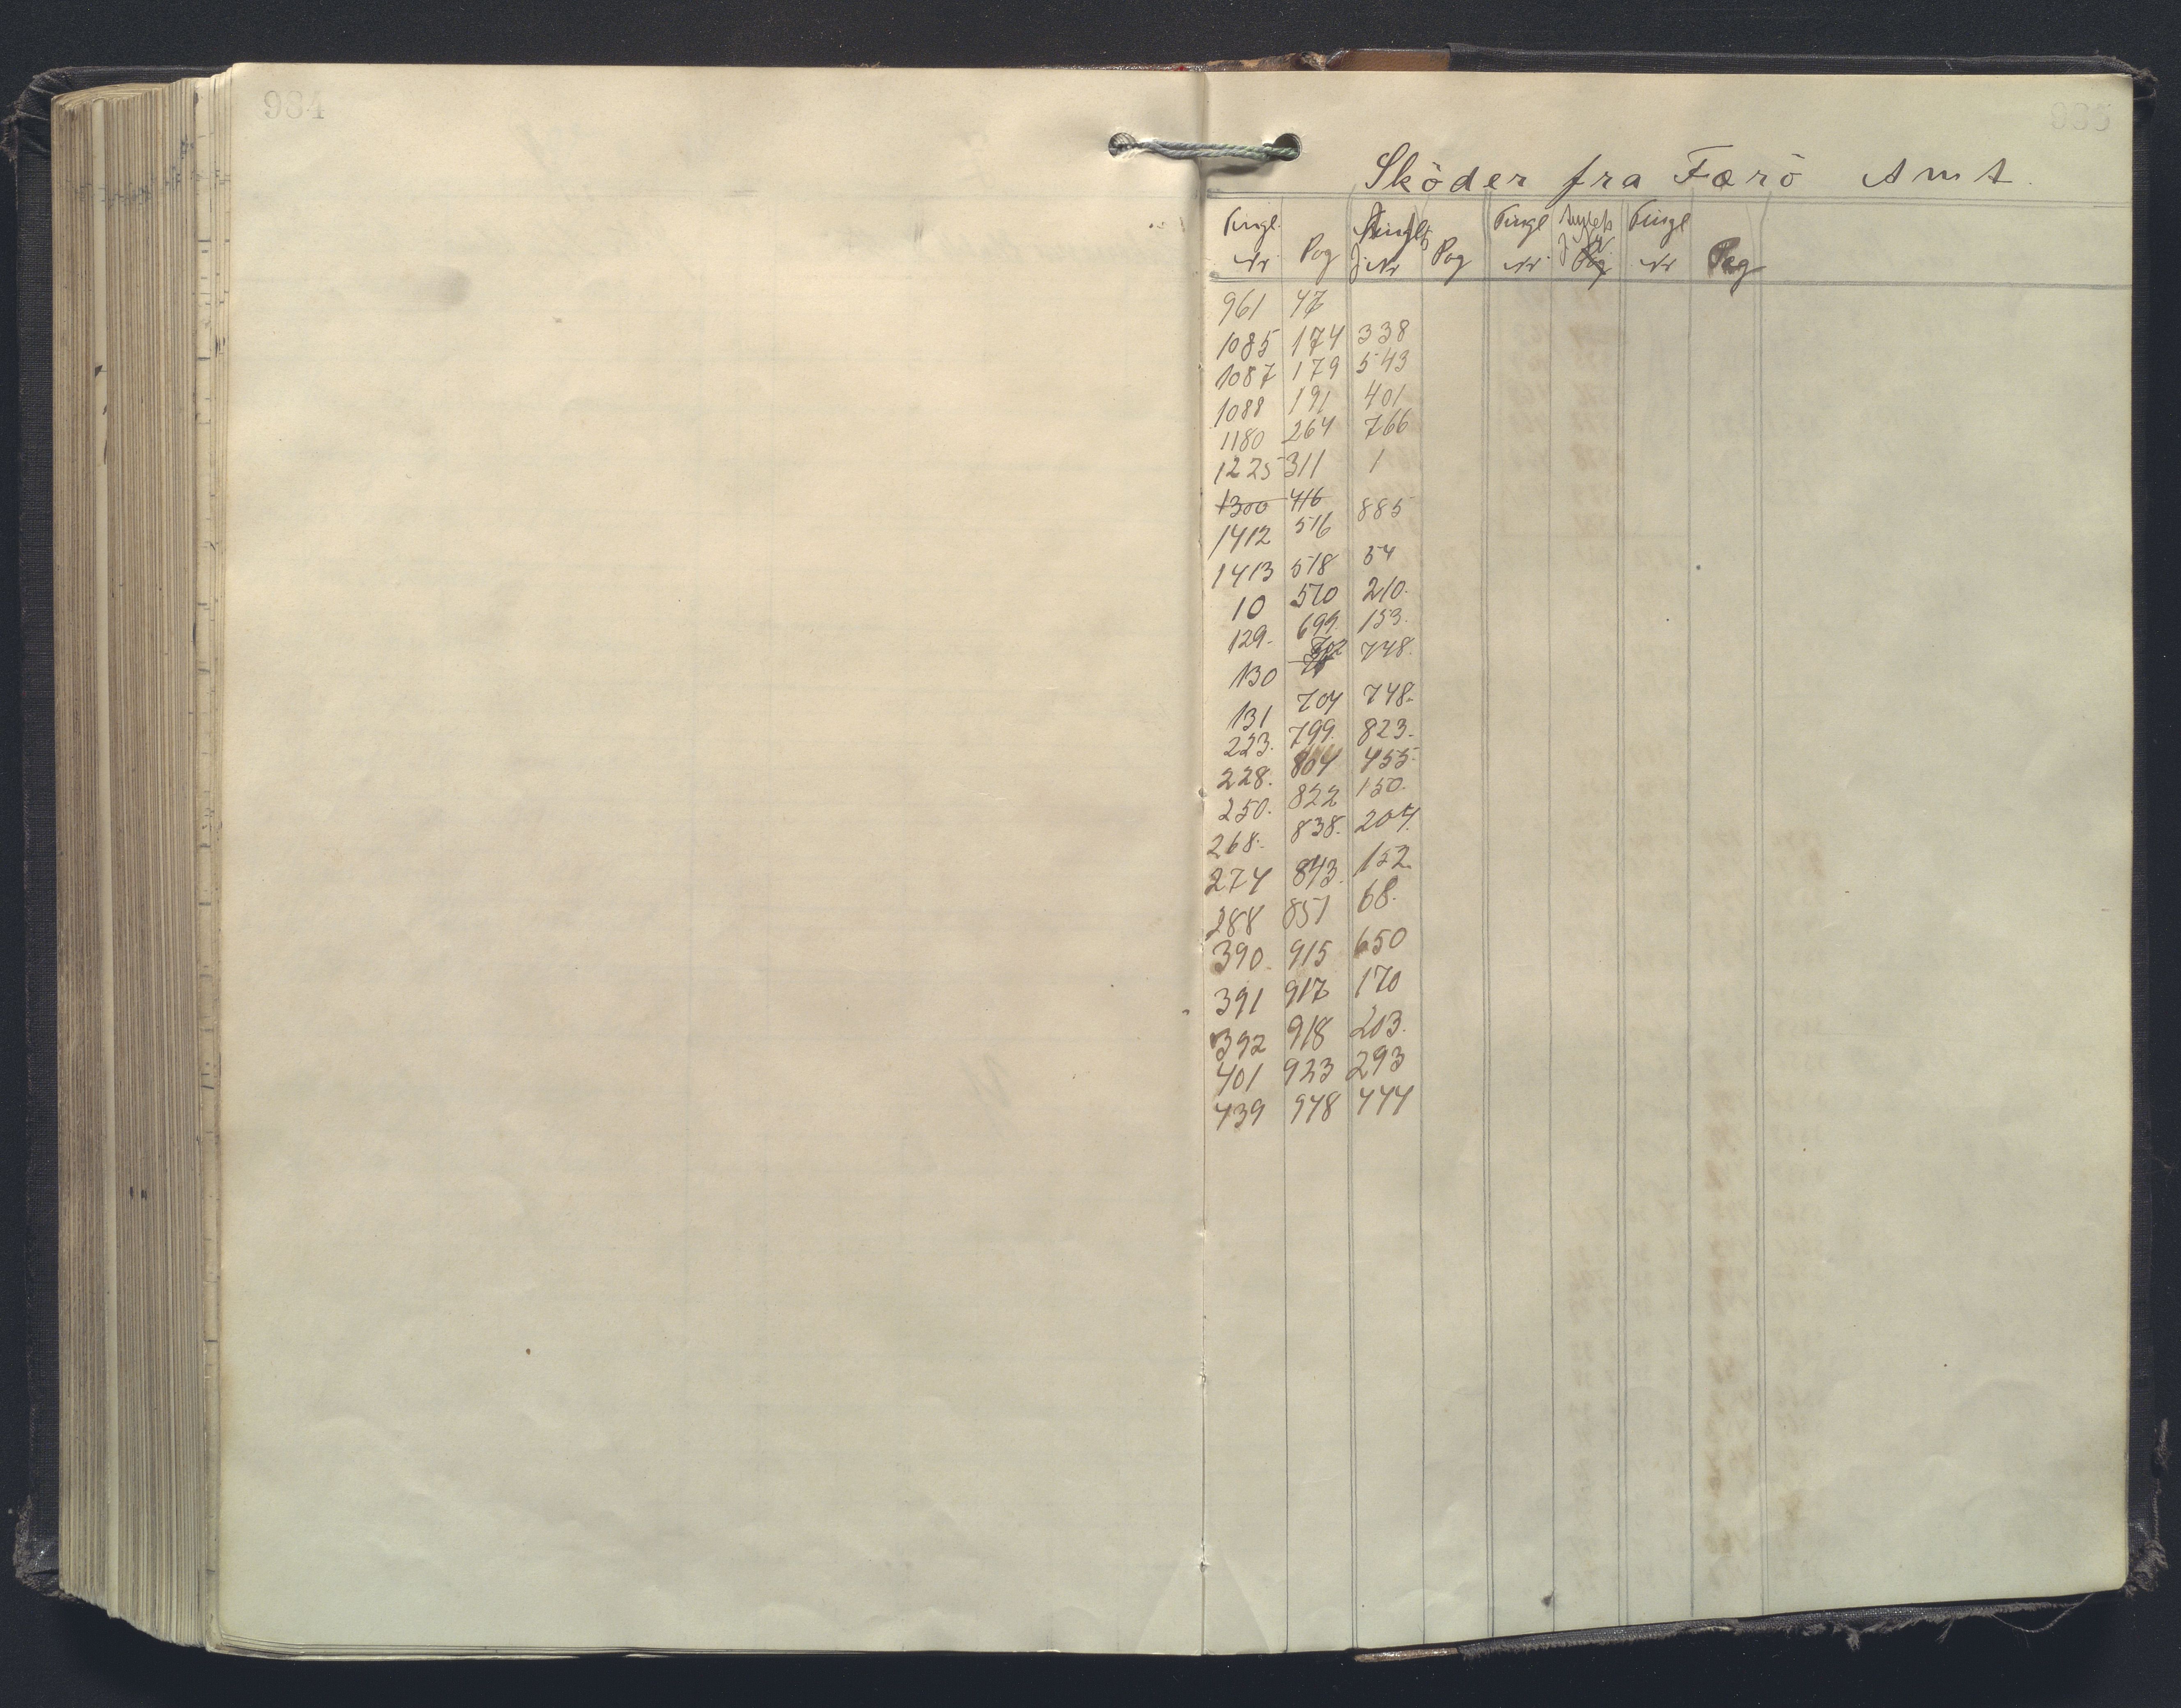 984
985
Sköder fra Færö Amt.
Tingl. Nr Pag J Nr Pag Tingl Nr Tingl Nr Pag
961 47
1085 174 338
1087 179 543
1088 191 401
1180 264 766
1225 311 1
1300 416
1412 516 885
1413 518 54
10 570 210.
129. 699. 153.
130 702 748.
131 704 748.
223. 799. 823.
228. 804 455.
250. 822 150.
268. 838. 204.
274 843. 152.
288 851 68.
390. 915 650
391 917 170
392 918 203.
401 923 293
439 948 444